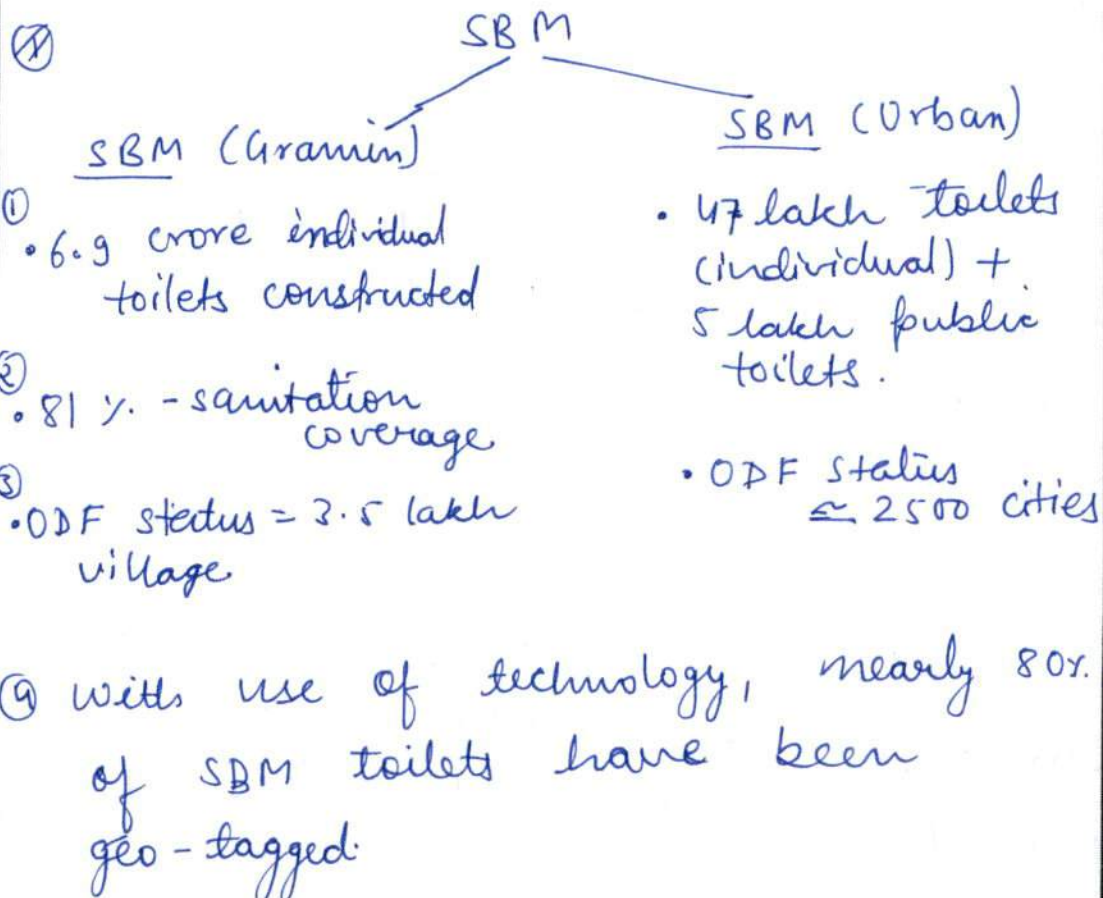 SBM
SBM (Gramin)
①
• 6.9 crore individual
toilets constructed
②
• 81 %. - sanitation
coverage
③
• ODF status = 3.5 lakh
village
SBM (Urban)
• 47 lakh toilets
(individual) +
5 lakh public
toilets.
• ODF status
≃ 2500 cities
④ with use of technology, nearly 80%.
of SBM toilets have been
geo-tagged.